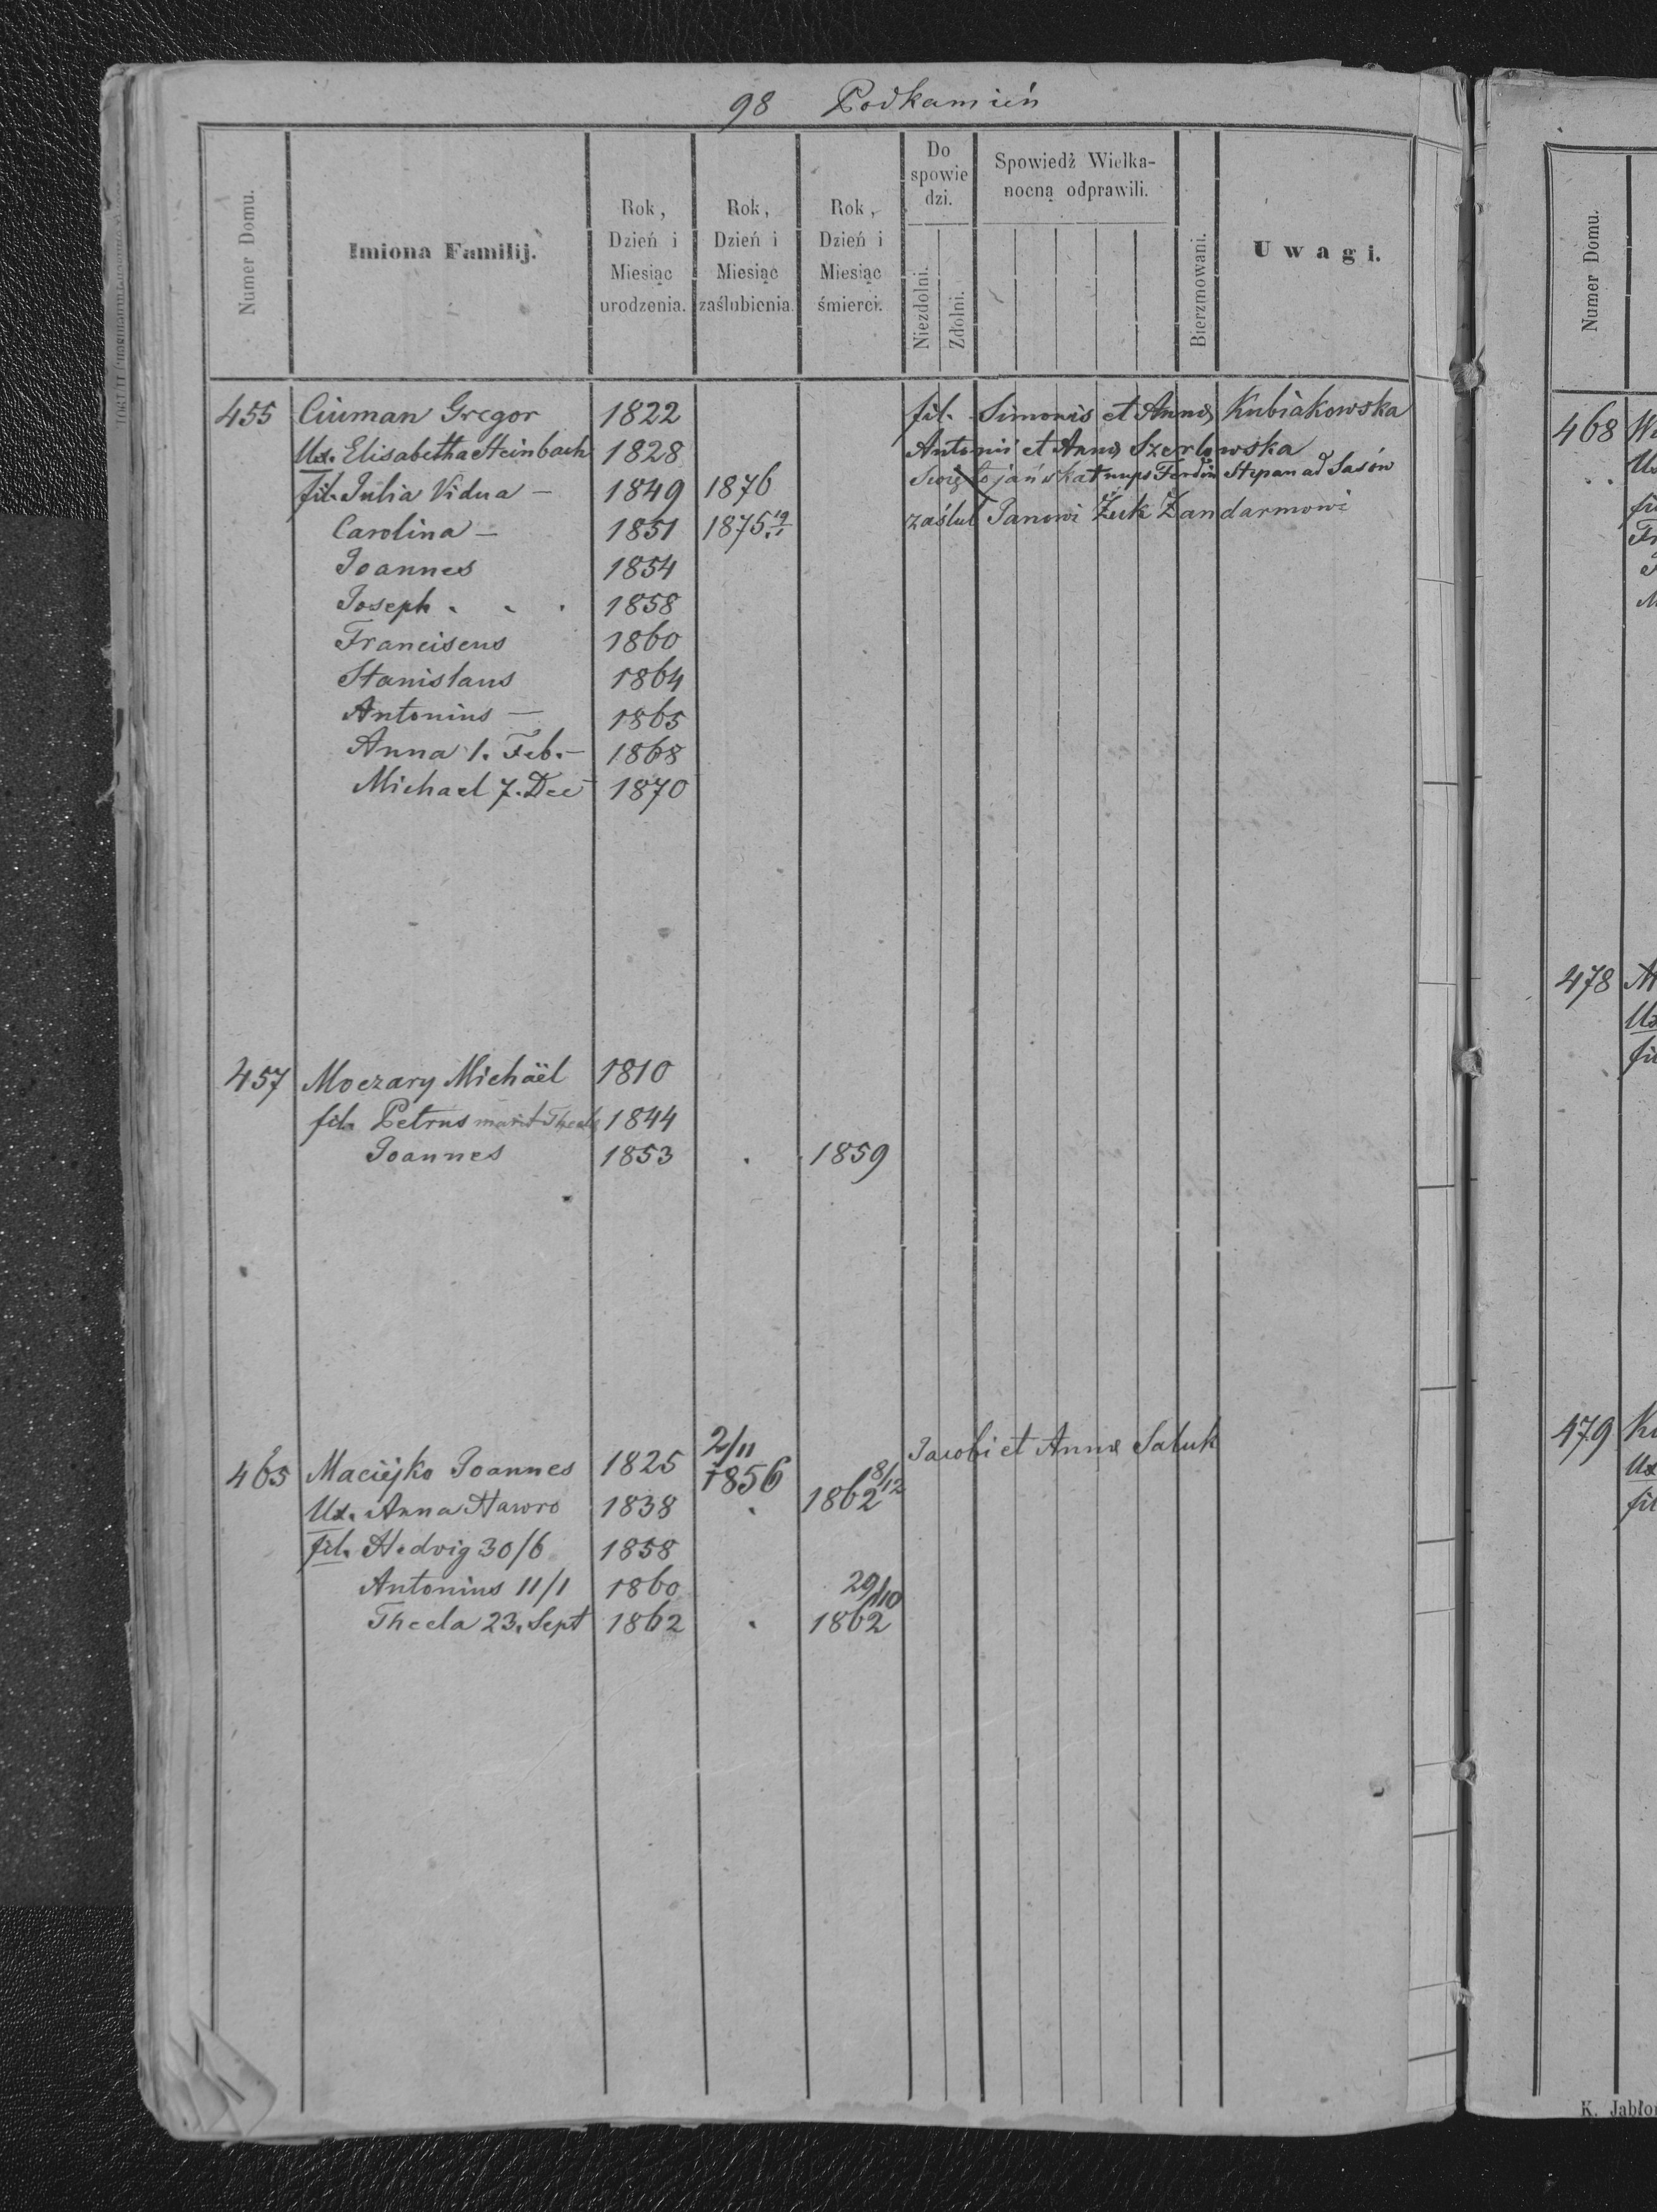 98 Podkamień
Numer Domu.
Imiona Familij.
Rok, Dzień i Miesiąc urodzenia.
Rok, Dzień i Miesiąc zaślubienia.
Rok, Dzień i Miesiąc śmierci.
Do spowie dzi.
Niezdolni.
Zdolni.
Spowiedź Wielka-
nocną odprawili.
Bierzmowani.
Uwagi.
455 Ciuman Gregor 1822 fil. Simonis et Annæ Kubiakowska
Ux. Elisabetha Steinbach 1828 Antonii et Annæ Szerlowska
fil. Julia Vidua — 1849 1876 nups Ferdin Stepan ad Sasów
Carolina — 1851 1875 zaślub Janowi Żuk Żandarmowi
Joannes 1854
Joseph . . . 1858
Franciscus 1860
Stanislaus 1864
Antonius — 1865
Anna 1. Feb. — 1868
Michael 7. Dec 1870
457 Moczary Michäel 1810
fil. Petrus marit Thecla 1844
Joannes 1853 . 1859
465 Maciejko Joannes 1825 2/11 1856 Jacobi et Annæ Saluk
Ux. Anna Hawro 1838 . 1862 8/12
fil. Hedvig 30/6 1858
Antonius 11/1 1860
Thecla 23. Sept 1862 . 29/10 1862
Numer Domu.
468
Ux
fil
478
Ux
fil
479
Ux
fil
K. Jabło